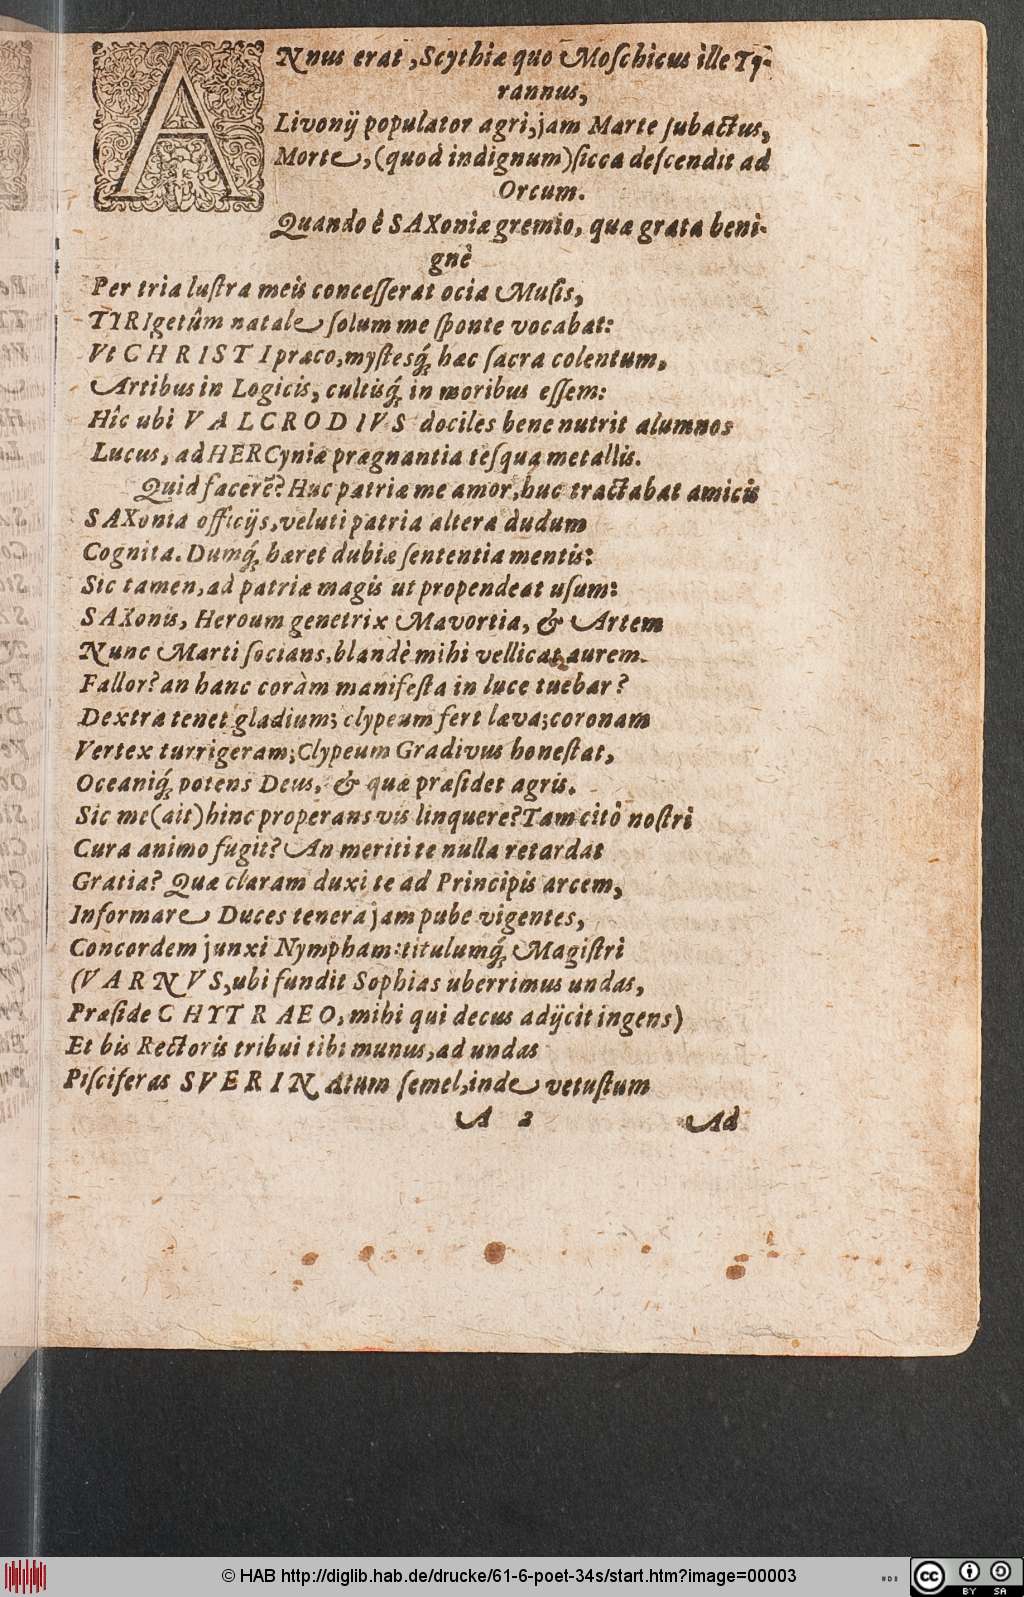 ANnus erat, Scythiæ quo Moſchicus ille Ty-
rannus,
Livonij populator agri, jam Marte ſubactus,
Morte, (quod indignum) ſicca deſcendit ad
Orcum.
Quando è SAXoniæ gremio, quæ grata beni-
gnè
Per tria luſtra meis conceſſerat ocia Muſis,
TIRIgetûm natale ſolum me ſponte vocabat:
Vt CHRISTI præco, myſtesq́; hæc ſacra colentum,
Artibus in Logicis, cultisq́; in moribus eſſem:
Hîc ubi VALCRODIVS dociles bene nutrit alumnos
Lucus, ad HERCyniæ prægnantia teſqua metallis.
Quid facerē? Huc patriæ me amor, huc tractabat amicis
SAXonia officijs, veluti patria altera dudum
Cognita. Dumq́; hæret dubiæ ſententia mentis:
Sic tamen, ad patriæ magis ut propendeat uſum:
SAXonis, Heroum genetrix Mavortia, & Artem
Nunc Marti ſocians, blandè mihi vellicat aurem.
Fallor? an hanc coràm manifeſta in luce tuebar?
Dextra tenet gladium; clypeum fert læva; coronam
Vertex turrigeram; Clypeum Gradivus honeſtat,
Oceaniq́; potens Deus, & quæ præſidet agris.
Sic me (ait) hinc properans vis linquere? Tam citò noſtri
Cura animo fugit? An meriti te nulla retardat
Gratia? Quæ claram duxi te ad Principis arcem,
Informare Duces tenera jam pube vigentes,
Concordem junxi Nympham: titulumq́; Magiſtri
(VARNVS, ubi fundit Sophias uberrimus undas,
Præſide CHYTRAEO, mihi qui decus adijcit ingens)
Et bis Rectoris tribui tibi munus, ad undas
Piſciferas SVERINAtum ſemel, inde vetuſtum
A 2 Ad
© HAB http://diglib.hab.de/drucke/61-6-poet-34s/start.htm?image=00003
cc BY SA